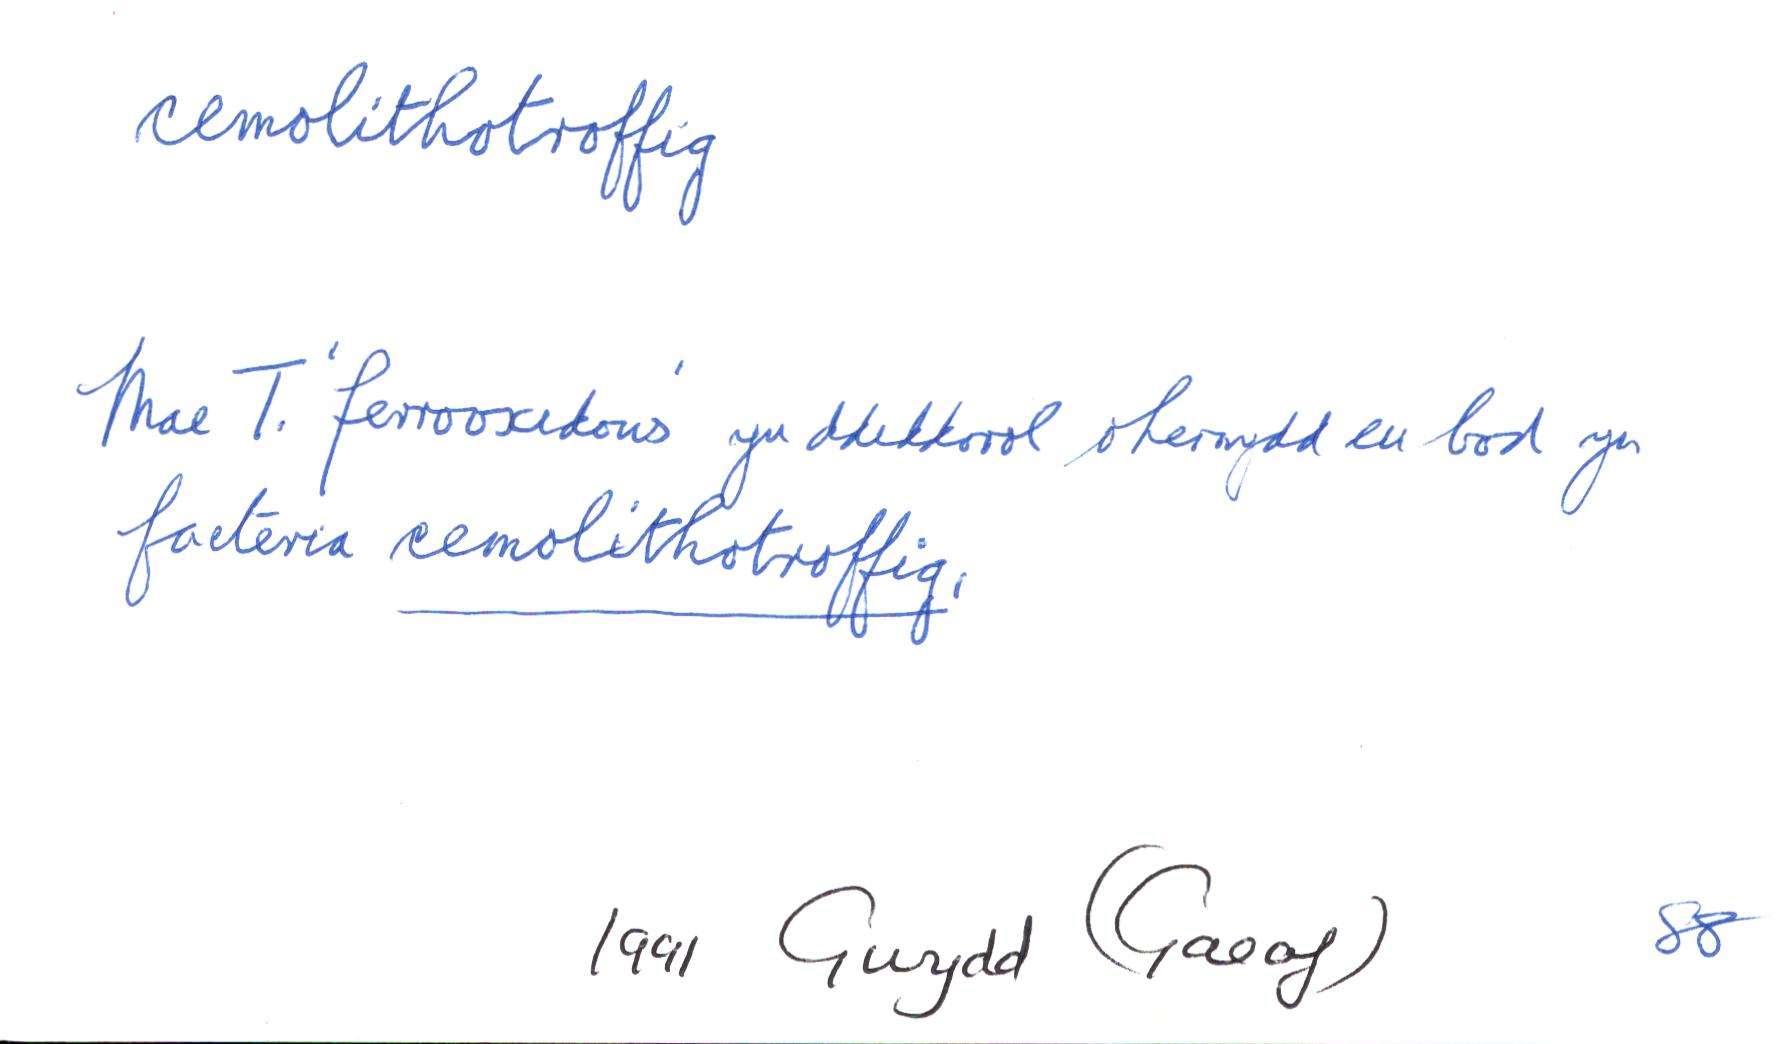 cemolithotroffig
Mae T. 'ferrooxidans' yn ddiddorol oherwydd eu bod yn
facteria cemolithotroffig.
1991 Gwydd (Gaeaf) 88